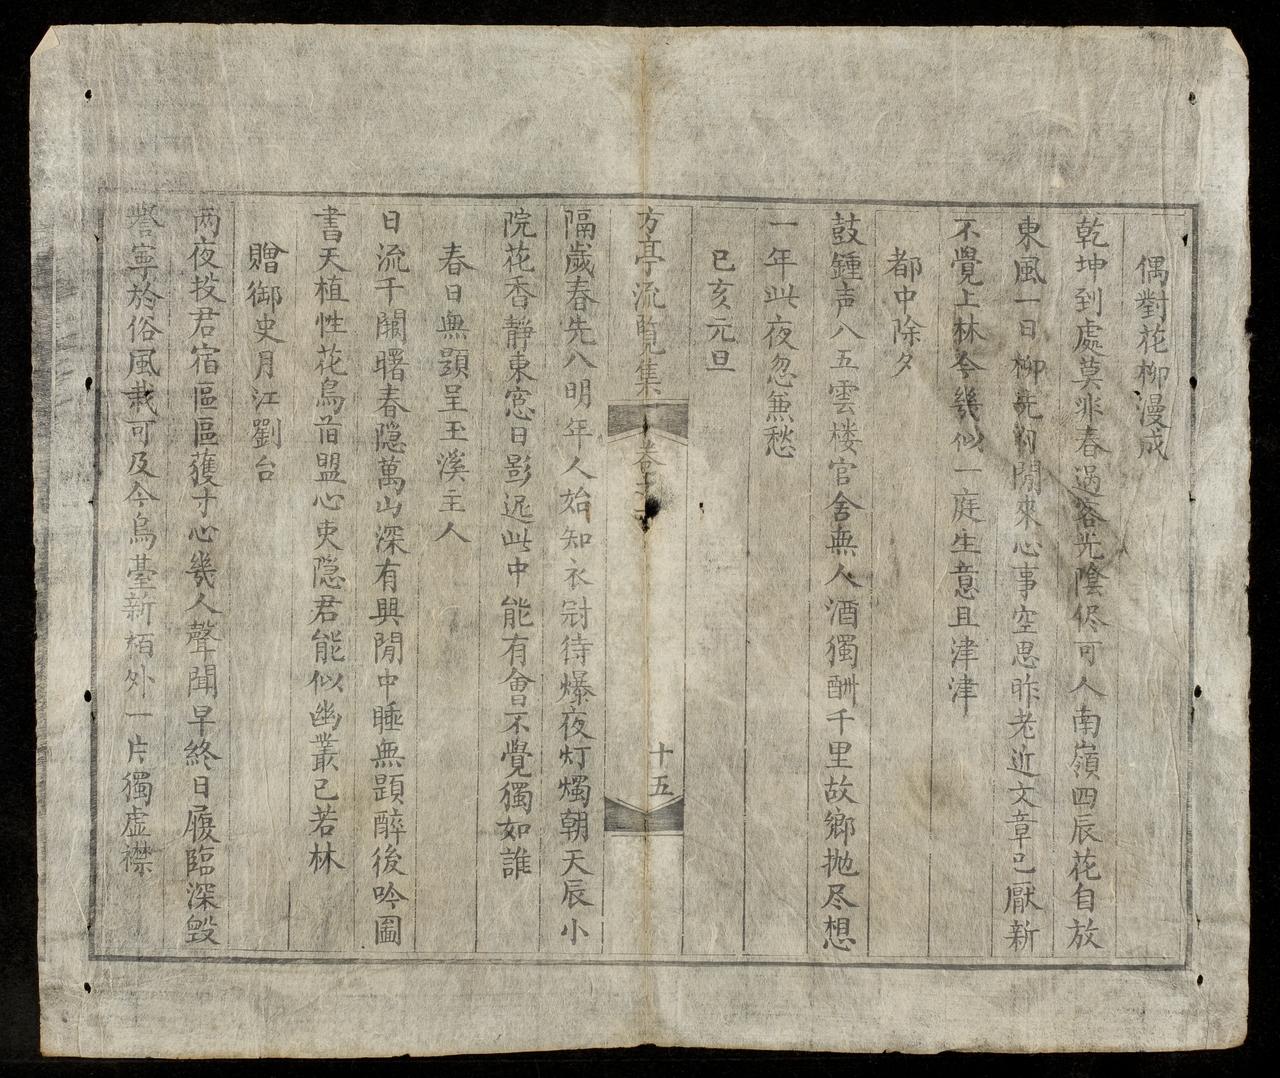 偶對花柳漫成
乾坤到處莫非春過客光陰侭可人南嶺四辰花自放
東風一日柳先匀閒來心事空思昨老近文章已厭新
不覺上林今幾似一庭生意且津津
都中除夕
鼓鍾声八五雲楼官舍無人酒獨酬千里故鄉抛尽想
一年此夜忽兼愁
已亥元旦
方亭流覧集
卷之
十五
隔歲春先八明年人始知衣冠待爆夜灯燭朝天辰小
院花香靜東窓日影迟此中能有會不覺獨如誰
春日無題呈玉溪主人
日流千關曙春隐萬山深有興閒中睡無題醉後吟圖
書天植性花鳥盟心吏隐君能似幽叢已若林
贈御史月江劉台
两夜投君宿區區獲寸心幾人聲聞早終日履臨深毀
譽寧於俗風裁可及今烏臺新栢外一片獨虚襟